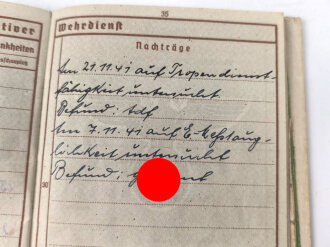 35
tiver
Wehrdienst
nkheiten
Nachträge
Am 21.11.41 auf Tropendienst-
fähigkeit untersucht
Befund: tdf
Am 7.11.41 auf
lichkeit untersucht
Befund:
30